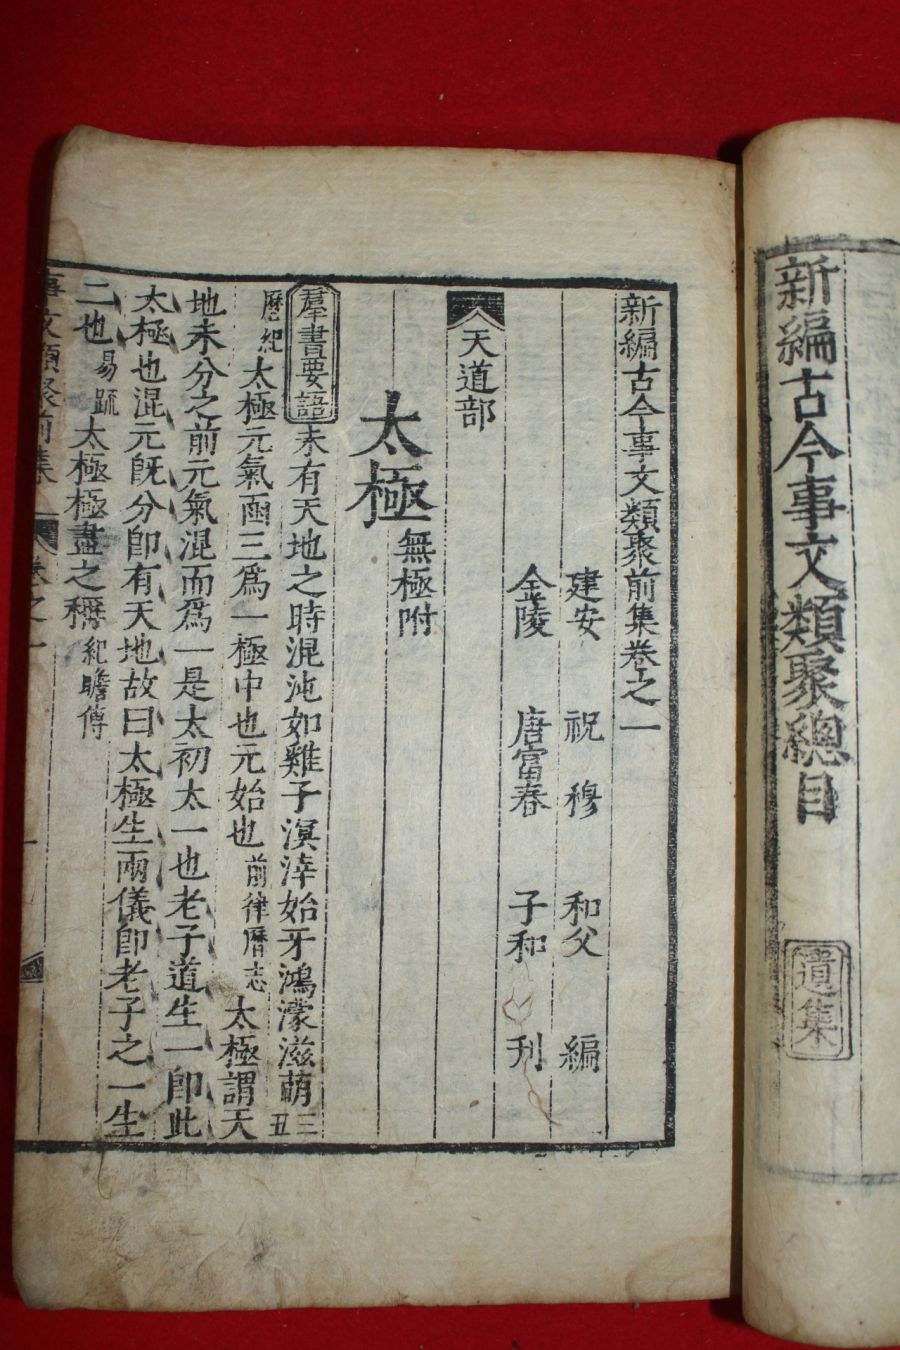 新編古今事文類聚總目
遺集
新編古今事文類聚前集卷之一
建安 祝穆 和父 編
金陵 唐富春 子和 刋
天道部
太極 無極附
羣書要語 未有天地之時混沌如雞子溟涬始牙鴻濛滋萌 三五
曆紀 太極元氣函三爲一極中也元始也 前律曆志 太極謂天
地未分之前元氣混而爲一是太初太一也老子道生一卽此
太極也混元旣分卽有天地故曰太極生兩儀卽老子之一生
二也 易䟽 太極極盡之稱 紀瞻傳
事文類聚前集 卷之一 一